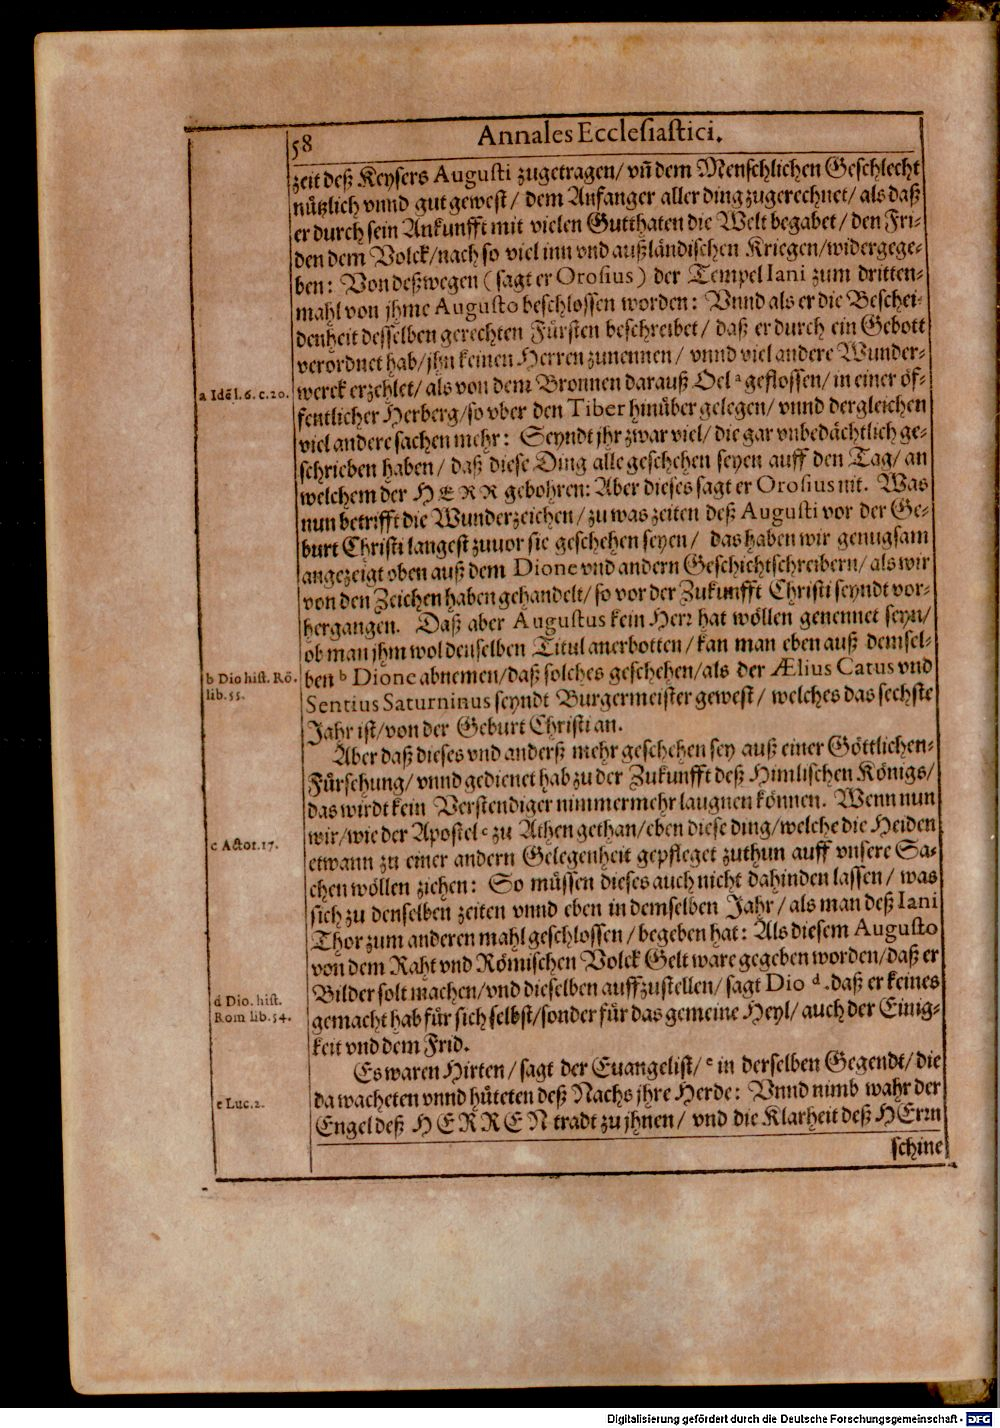 58
Annales Ecclesiastici.
zeit deß Keysers Augusti zugetragen/ vñ dem Menschlichen Geschlecht
nützlich vnnd gut gewest/ dem Anfanger aller ding zugerechnet/ als daß
er durch sein Ankunfft mit vielen Gutthaten die Welt begabet/ den Fri-
den dem Volck/ nach so viel inn vnd außländischen Kriegen/ widergege-
ben: Von deßwegen (sagt er Orosius) der Tempel Iani zum dritten-
mahl von jhme Augusto beschlossen worden: Vnnd als er die Beschei-
denheit desselben gerechten Fürsten beschreibet/ daß er durch ein Gebott
verordnet hab/ jhn keinen Herren zunennen/ vnnd viel andere Wunder-
a Idẽ l. 6. c. 20.
werck erzehlet/ als von dem Bronnen darauß Oel a geflossen/ in einer öf-
fentlicher Herberg/ so vber den Tiber hinüber gelegen/ vnnd dergleichen
viel andere sachen mehr: Seyndt jhr zwar viel/ die gar vnbedächtlich ge-
schrieben haben/ daß diese Ding alle geschehen seyen auff den Tag/ an
welchem der HERR gebohren: Aber dieses sagt er Orosius nit. Was
nun betrifft die Wunderzeichen/ zu was zeiten deß Augusti vor der Ge-
burt Christi langest zuuor sie geschehen seyen/ das haben wir genugsam
angezeigt oben auß dem Dione vnd andern Geschichtschreibern/ als wir
von den Zeichen haben gehandelt/ so vor der Zukunfft Christi seyndt vor-
hergangen. Daß aber Augustus kein Herr hat wöllen genennet seyn/
ob man jhm wol denselben Titul anerbotten/ kan man eben auß demsel-
b Dio hist. Rö.
lib. 55.
ben b Dione abnemen/ daß solches geschehen/ als der Ælius Catus vnd
Sentius Saturninus seyndt Burgermeister gewest/ welches das sechste
Jahr ist/ von der Geburt Christi an.
Aber daß dieses vnd anderß mehr geschehen sey auß einer Göttlichen-
Fürsehung/ vnnd gedienet hab zu der Zukunfft deß Himlischen Königs/
das wirdt kein Verstendiger nimmermehr laugnen können. Wenn nun
c Actor. 17.
wir/ wie der Apostel c zu Athen gethan/ eben diese ding/ welche die Heiden
etwann zu einer andern Gelegenheit gepfleget zuthun auff vnsere Sa-
chen wöllen ziehen: So müssen dieses auch nicht dahinden lassen/ was
sich zu denselben zeiten vnnd eben in demselben Jahr/ als man deß Iani
Thor zum anderen mahl geschlossen/ begeben hat: Als diesem Augusto
von dem Raht vnd Römischen Volck Gelt ware gegeben worden/ daß er
d Dio. hist.
Rom lib. 54.
Bilder solt machen/ vnd dieselben auffzustellen/ sagt Dio d. daß er keines
gemacht hab für sich selbst/ sonder für das gemeine Heyl/ auch der Einig-
keit vnd dem Frid.
Es waren Hirten/ sagt der Euangelist/ e in derselben Gegendt/ die
e Luc. 2.
da wacheten vnnd hüteten deß Nachs jhre Herde: Vnnd nimb wahr der
Engel deß HERREN tradt zu jhnen/ vnd die Klarheit deß HErrn
schine
Digitalisierung gefördert durch die Deutsche Forschungsgemeinschaft - DFG